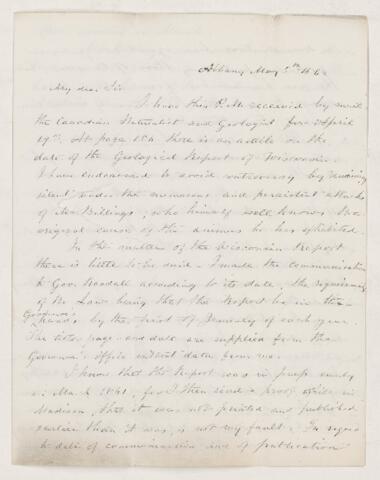 Albany May 5th 186
My dear Sir
I have this P.M. received by mail
the Canadian Naturalist and Geologist for April
19th. At page 154 there is an article on the
date of the Geological Report of Wisconsin
I have endeavored to avoid controversy by remaining
silent under the numerous and persistent attacks
of Mr Billings, who himself well knows the
original cause of the animus he has exhibited
In the matter of the Wisconsin Report
there is little to be said. I made the communication
to Gov. Randall according to its date, the requirement
of the Law being that the Report be in the
Governor's
hands by the first of January of each year.
The title page and date are supplied from the
Governor's office without data from me.
I know that the Report was in press early
in March 1861, for I then read a proof while in
Madison, that it was not printed and published
earlier than it was, is not my fault. In regard
to date of communication and of publication